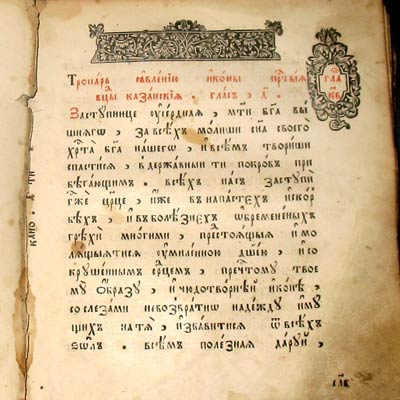 Тропарь ꙗвленїю иконы прⷭ҇тыѧ
бцы казанскїѧ . гласъ , д҃ .
Заступнице ѹсерднаѧ , мт҃и бг҃а вы
шнѧго , за всѣхъ молиши сн҃а своего
хрⷭ҇та бг҃а нашего , и всѣм твориши
спастисѧ , в державныи ти покровъ при
бѣгающим . всѣхъ насъ заступи
гж҃е црц҃е , иже в напастех и скор
бѣх , и в болѣзнех ѡбремененых
грѣхи многими , престоѧщыѧ и мо
лѧщыѧтисѧ ѹмиленною дш҃ею , и со
крушенным срⷣцем , пречⷭ҇тому твое
му ѻбразу , и чюдотворнеи иконѣ ,
со слезами невозвратно надежду иму
щихъ на тѧ , избавитисѧ ѿ всѣхъ
ѕѡлъ . всѣм полезнаѧ даруй ,